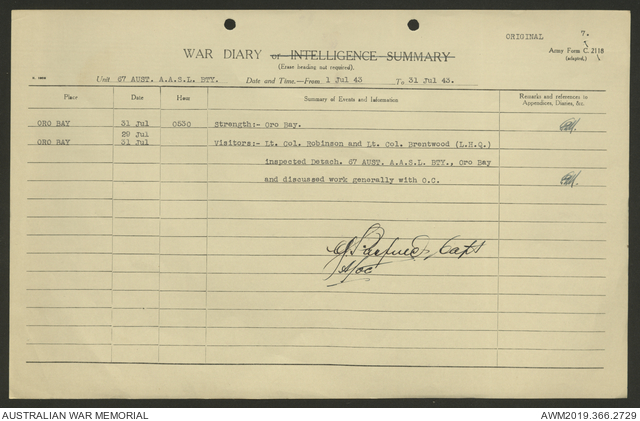 ORIGINAL 7.
WAR DIARY of INTELLIGENCE SUMMARY
Army Form C. 2118
(Erase heading not required).
(adapted.)
Unit 67 AUST. A.A.S.L. BTY. Date and Time.—From 1 Jul 43 To 31 Jul 43.
Place Date Hour Summary of Events and Information Remarks and references to
Appendices, Diaries, &c.
ORO BAY 31 Jul 0530 Strength:- Oro Bay.
29 Jul
ORO BAY 31 Jul Visitors:- Lt. Col. Robinson and Lt. Col. Brentwood (L.H.Q.)
inspected Detach. 67 AUST. A.A.S.L. BTY., Oro Bay
and discussed work generally with O.C.
Capt
AUSTRALIAN WAR MEMORIAL AWM2019.366.2729